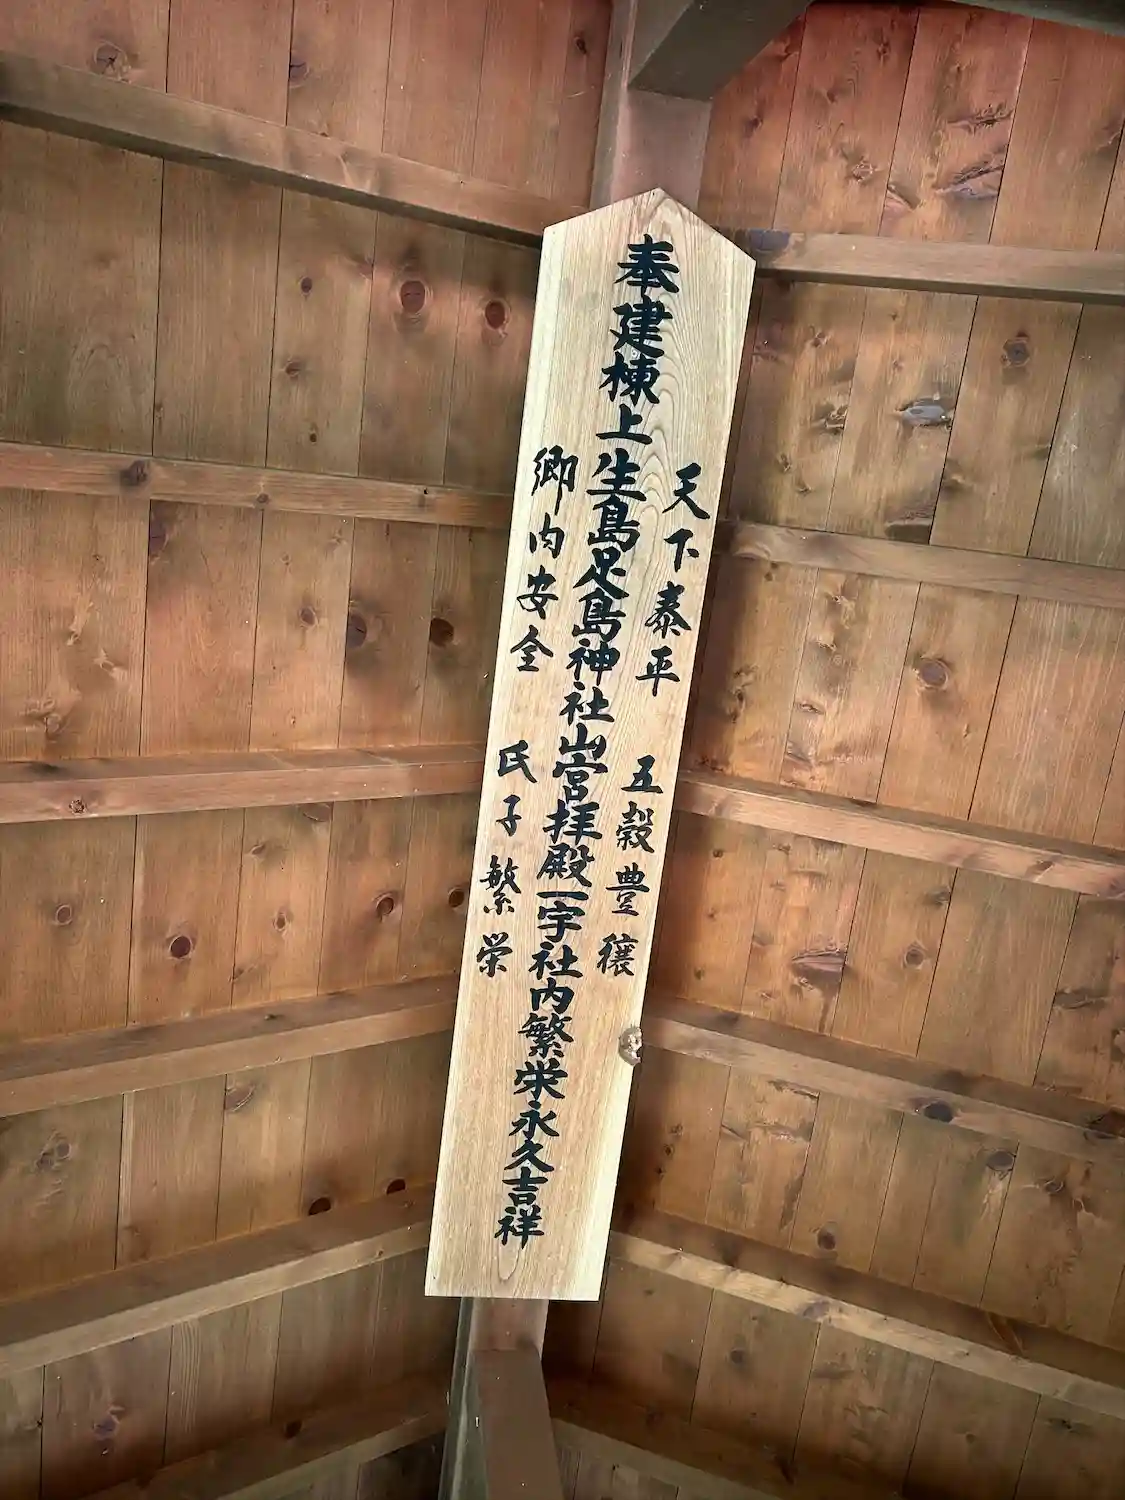 奉建棟上生島足島神社山宮拝殿一宇社内繁栄永久吉祥
天下泰平 五穀豊穣
郷内安全 氏子繁栄